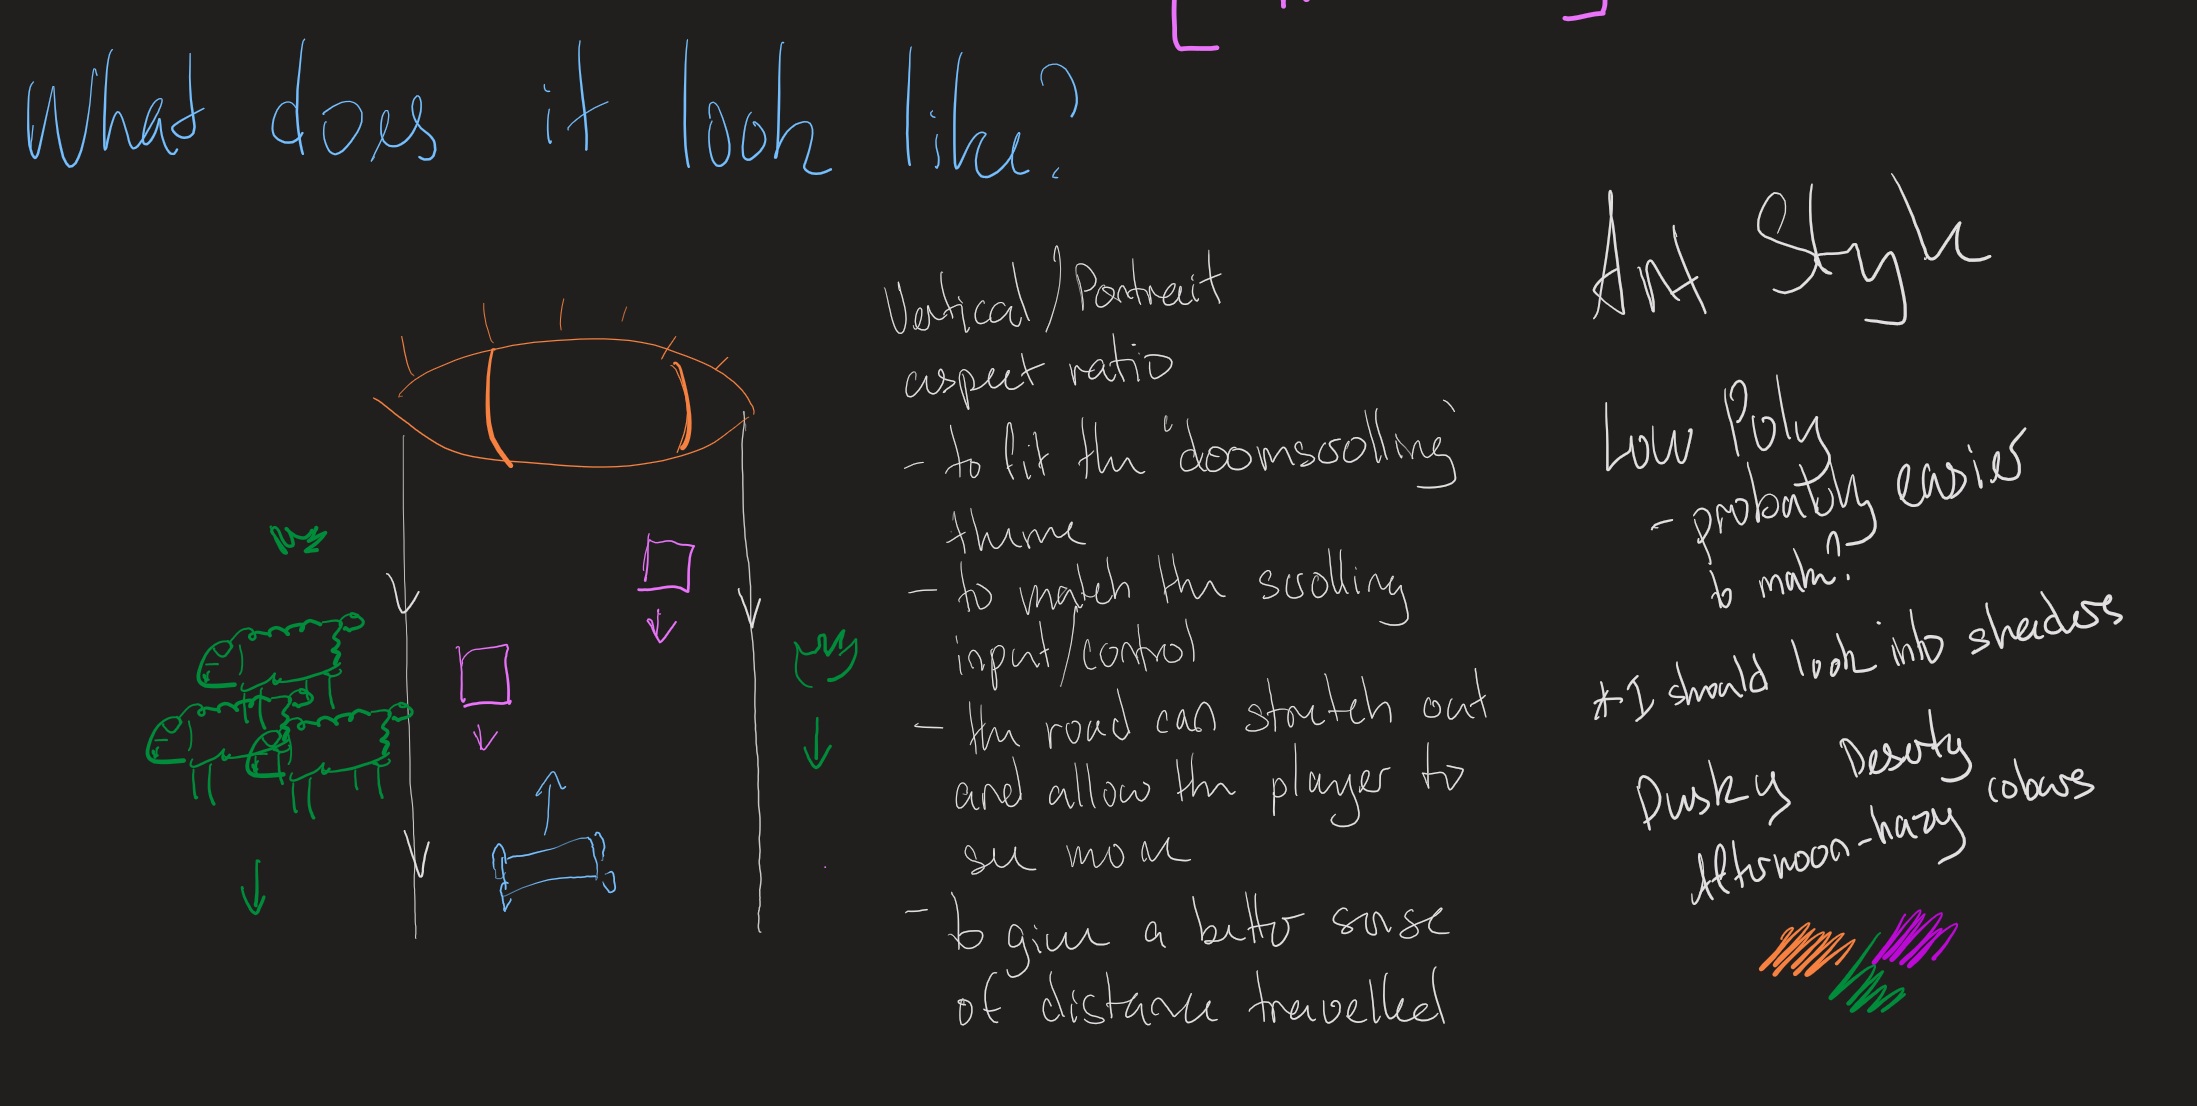 What does it look like?
Vertical/Portrait
aspect ratio
- to fit the "doomscrolling"
theme
- to match the scrolling
input/control
- the road can stretch out
and allow the player to
see more
- to give a better sense
of distance travelled
Art Style
Low Poly
- probably easier
to make?
* I should look into shaders
Dusky Deserty
Afternoon-hazy colours